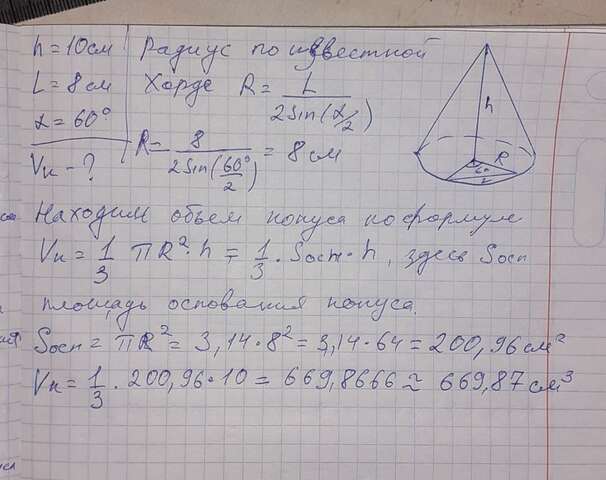 h = 10см
L = 8 см
α = 60°
Vк - ?
Радиус по известной
Хорде R = L / 2Sin(α/2)
R = 8 / 2Sin(60°/2) = 8 см
h
R
60°
L
Находим объем конуса по формуле
Vк = 1/3 πR²·h = 1/3 · Sосн · h, здесь Sосн
площадь основания конуса.
Sосн = πR² = 3,14·8² = 3,14·64 = 200,96 см²
Vк = 1/3 · 200,96·10 = 669,8666 ≈ 669,87 см³